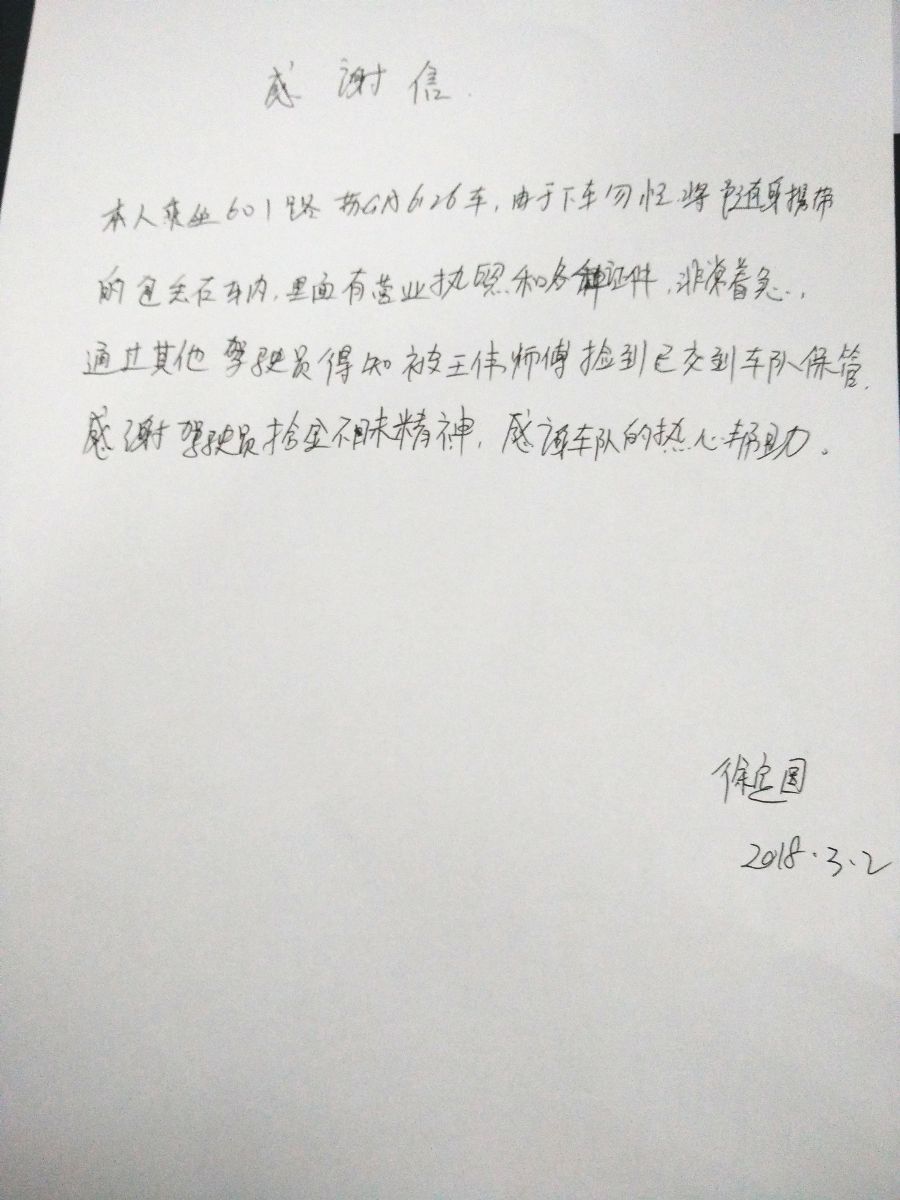 感谢信
本人乘坐601路苏GA6126车,由于下车匆忙将随身携带
的包丢在车内,里面有营业执照和各种证件,非常着急,
通过其他驾驶员得知被王伟师傅捡到已交到车队保管,
感谢驾驶员拾金不昧精神,感谢车队的热心帮助。
徐定国
2018.3.2